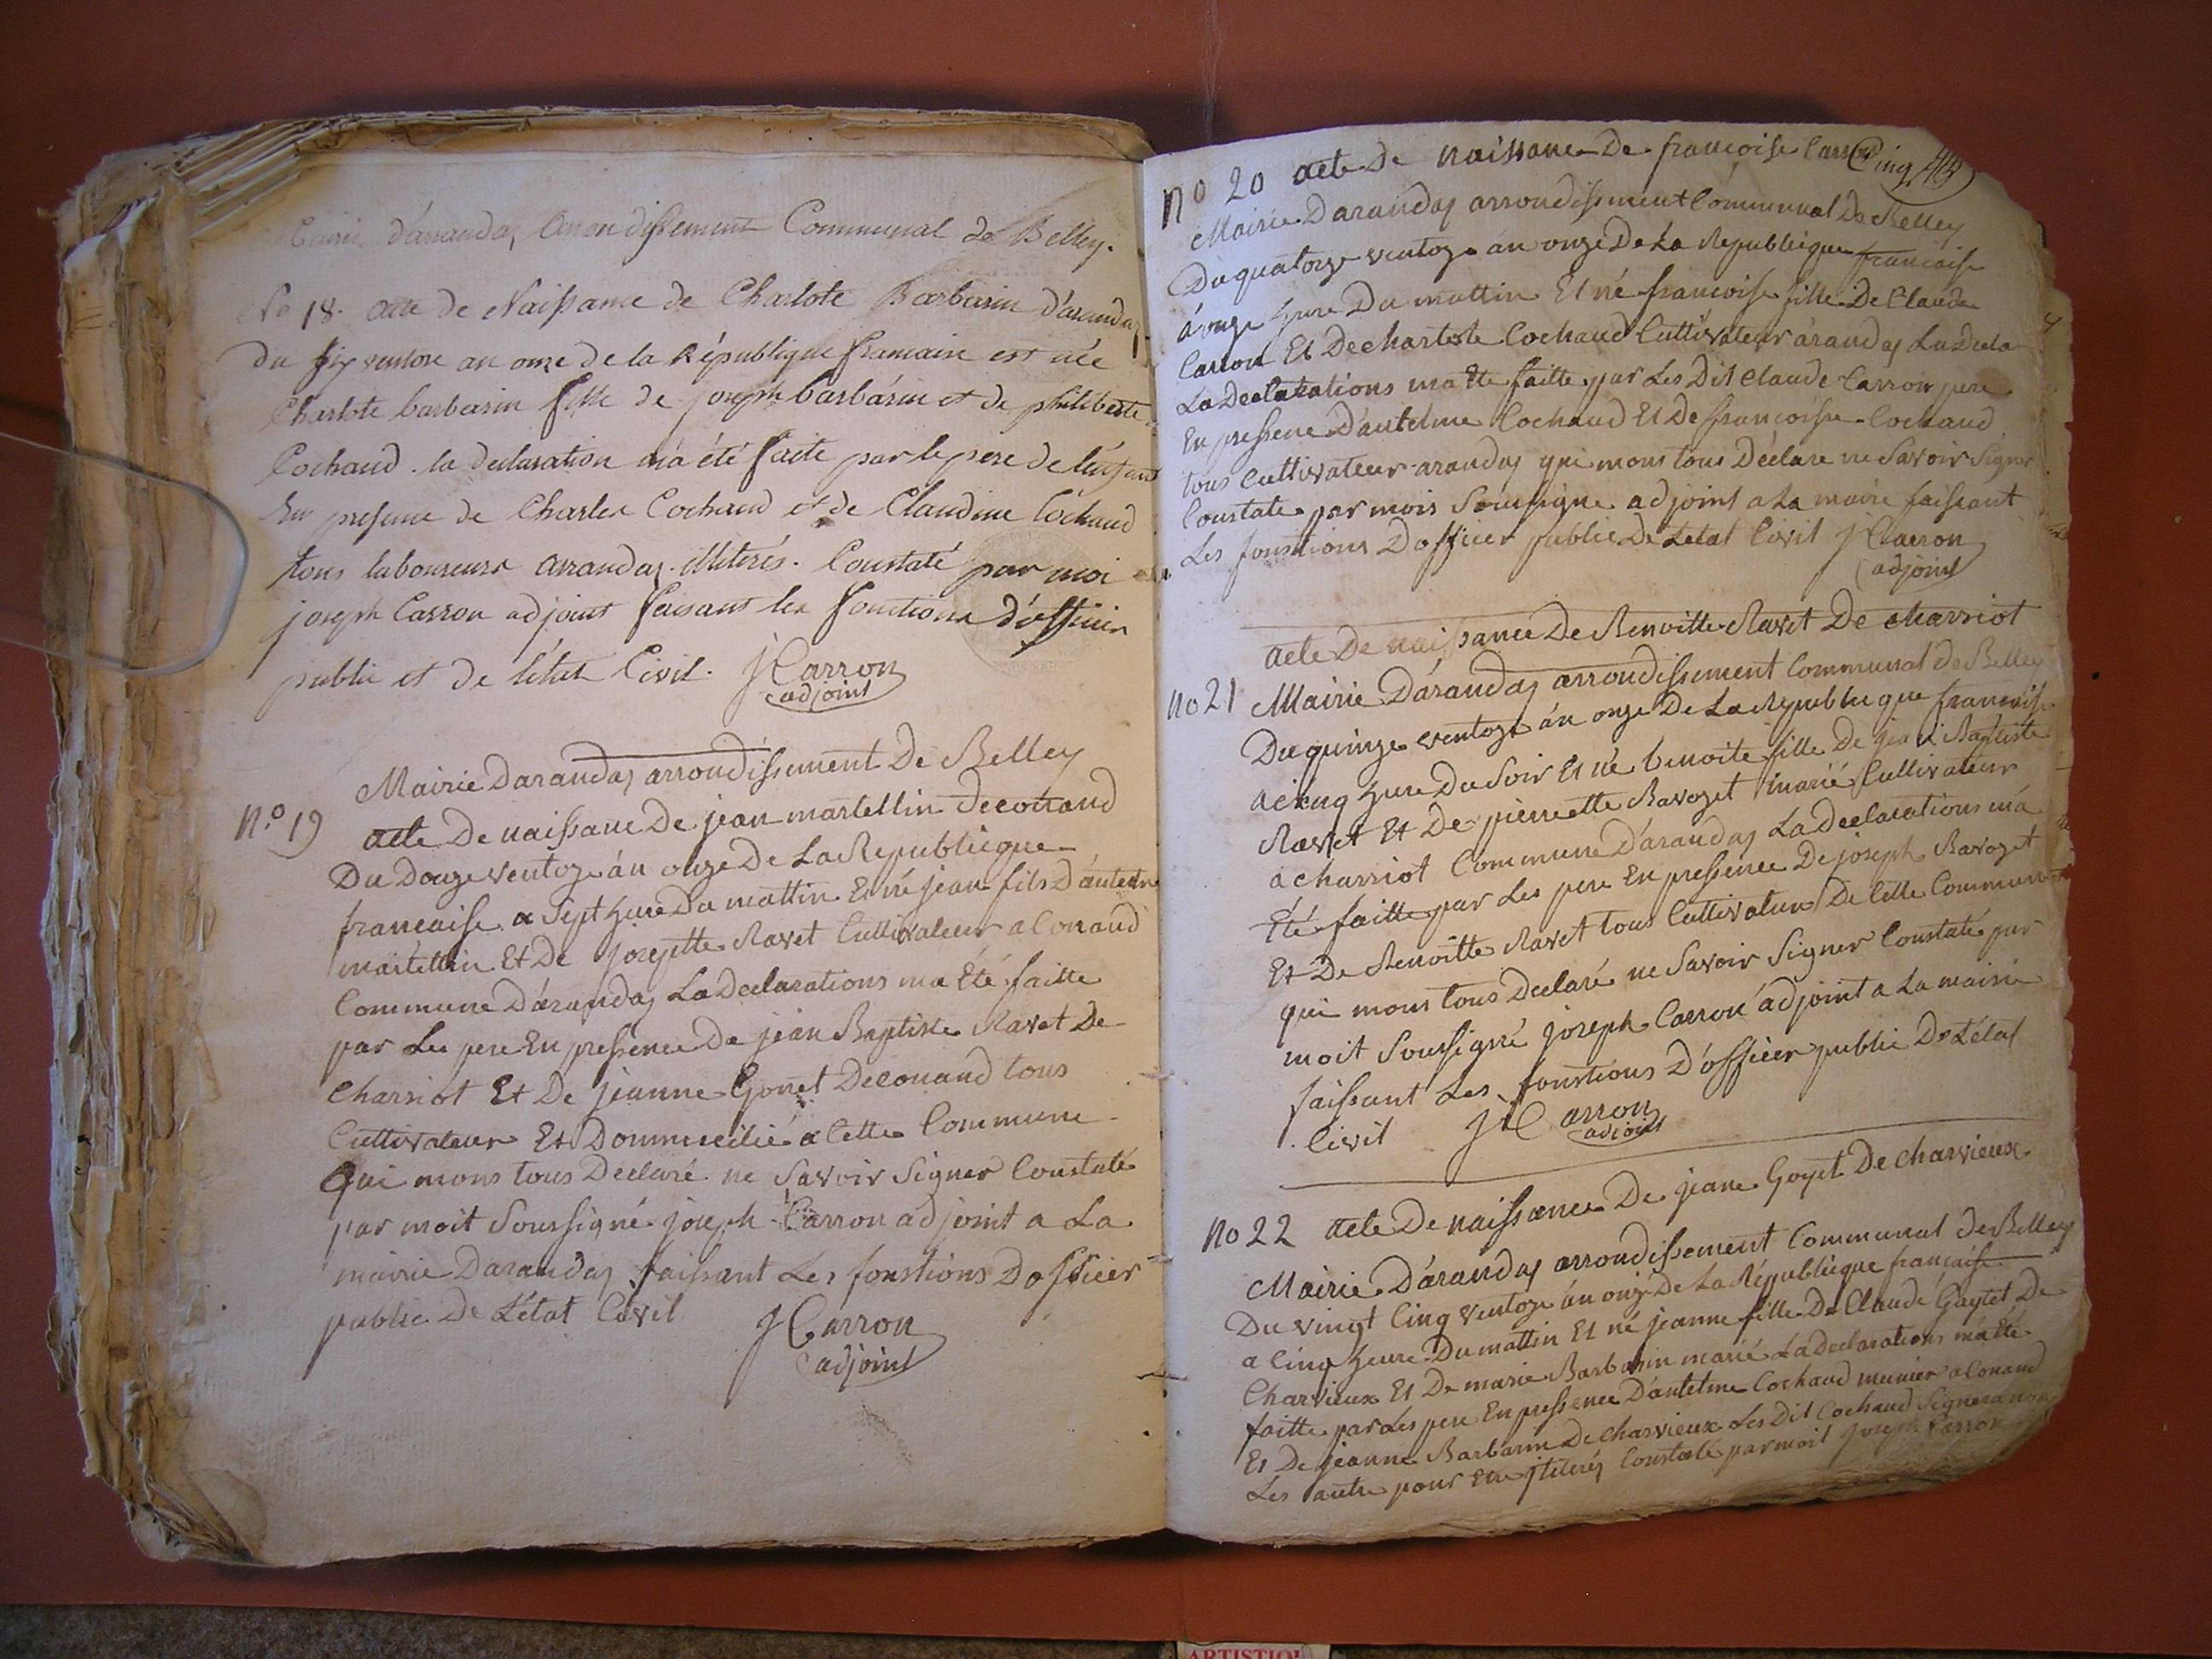 Mairie d'arandas, Arrondissement Communal de Belley.
No 18. acte de Naissance de Charlote Barbarin d'arandas
du six ventose an onze de la République francaise est née
Charlote barbarin fille de joseph barbarin et de philiberte
Cochaud. la declaration m'a été faite par le pere de l'enfant
En presence de Charles Cochaud et de Claudine Cochaud
tous laboureurs arandas. illiterés. Constaté par moi
joseph Carron adjoint faisant les fonctions d'officier
public et de l'état Civil. J Carron
adjoint
Mairie Darandas arrondissement De Belley
N.o 19 acte De naissance De jean martellin Deconand
Du Douze ventoze án onze De La Republicque
francaise a Sept hure Du mattin Et né jean fils D'antelme
martellin Et De josephte Ravet Cultivateur a Conand
Commune D'arandas La Declarations ma Été faitte
par Les pere En pressence De jean Baptiste Ravet De
Charriot Et De jeanne Gonet Deconand tous
Cultivateur Et Dommicilié a Cette Commune
Qui mons tous Declaré ne Savoir Signer Constaté
par moit Soussigné joseph Carron adjoint a La
mairie Darandas faissant Les fonstions Dofficier
public De L'état Civil J Carron
adjoint
Cinq
no 20 acte De naissance De francoise Carron
Mairie Darandas arrondissement Communal De Belley
Du quatorze ventoze án onze De La Republicque francaise
á onze hure Du mattin Et né francoise fille De Claude
Carron Et De charlote Cochaud Cultivateur árandas La Decla
La Declarations ma Ete faitte par Les Dit Claude Carron pere
En pressence D'antelme Cochaud Et De francoise Cochaud
tous Cultivateur arandas qui mons tous Déclare ne Savoir Signer
Constate par mois Soussigne adjoint a La mairie faissant
Les fonstions Dofficier public De Letat Civil J Carron
adjoint
acte De naissance De Benoitte Ravet De charriot
no 21 Mairie D'arandas arrondissement Communal De Belley
Du quinze ventoze án onze De La Republicque francaise
a cinq hure Du Soir Et né benoite fille De jean Baptiste
Ravet Et De pierrette Ravozet marié Cultivateur
á charriot Commune D'arandas La Declarations má
Eté faitte par Les pere En pressence De joseph Ravozet
Et De Benoitte Ravet tous Cultivateur De Cette Commune
qui mons tous Declaré ne Savoir Signer Constaté par
moit Soussigné joseph Carron adjoint a La mairie
faissant Les fonstions D'officier public De L'état
Civil J Carron
adjoint
no 22 acte De naissance De jeane Goyet De charvieux
Mairie D'arandas arrondissement Communal De Belley
Du vingt Cinq ventoze án onze De La Républicque francaise
a Cinq heure Du mattin Et né jeanne fille De Claude Goytet De
Charvieux Et De marie Barbarin marié La Declarations má Eté
faitte par Les pere En pressence D'antelme Cochaud munier a Conand
Et De jeanne Barbarin De charvieux Les Dit Cochaud Signera non
Les autre pour Etre jliterés Constaté par moit joseph Carron
ARTISTIQ